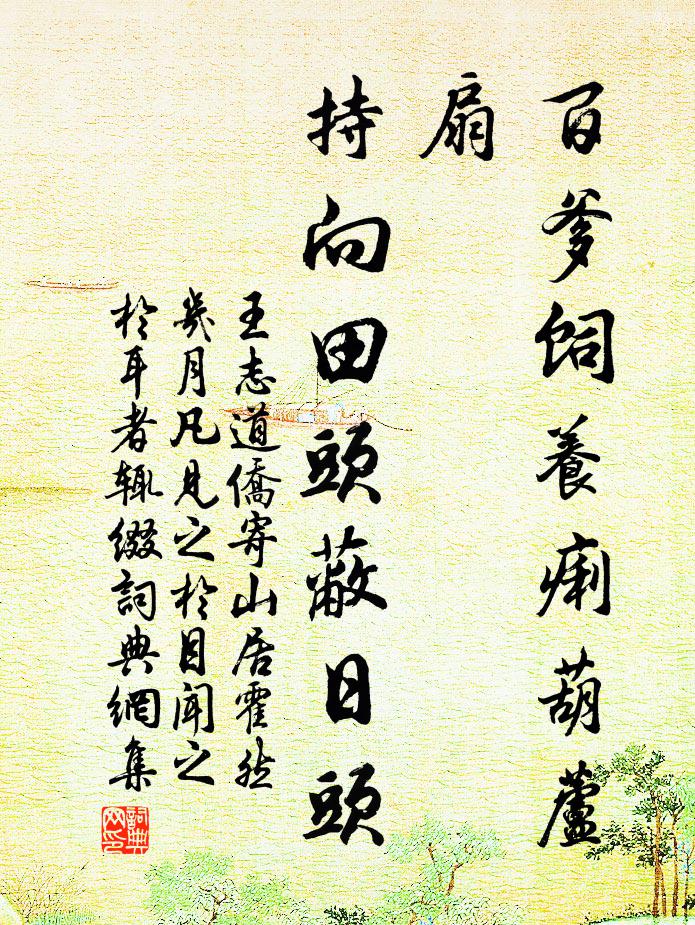 百爹飼養痢葫蘆
扇
持向田頭蔽日頭
王志道僑寄山居霍然
幾月凡見之於目聞之
於耳者輒綴詞典網集
詞典
网印